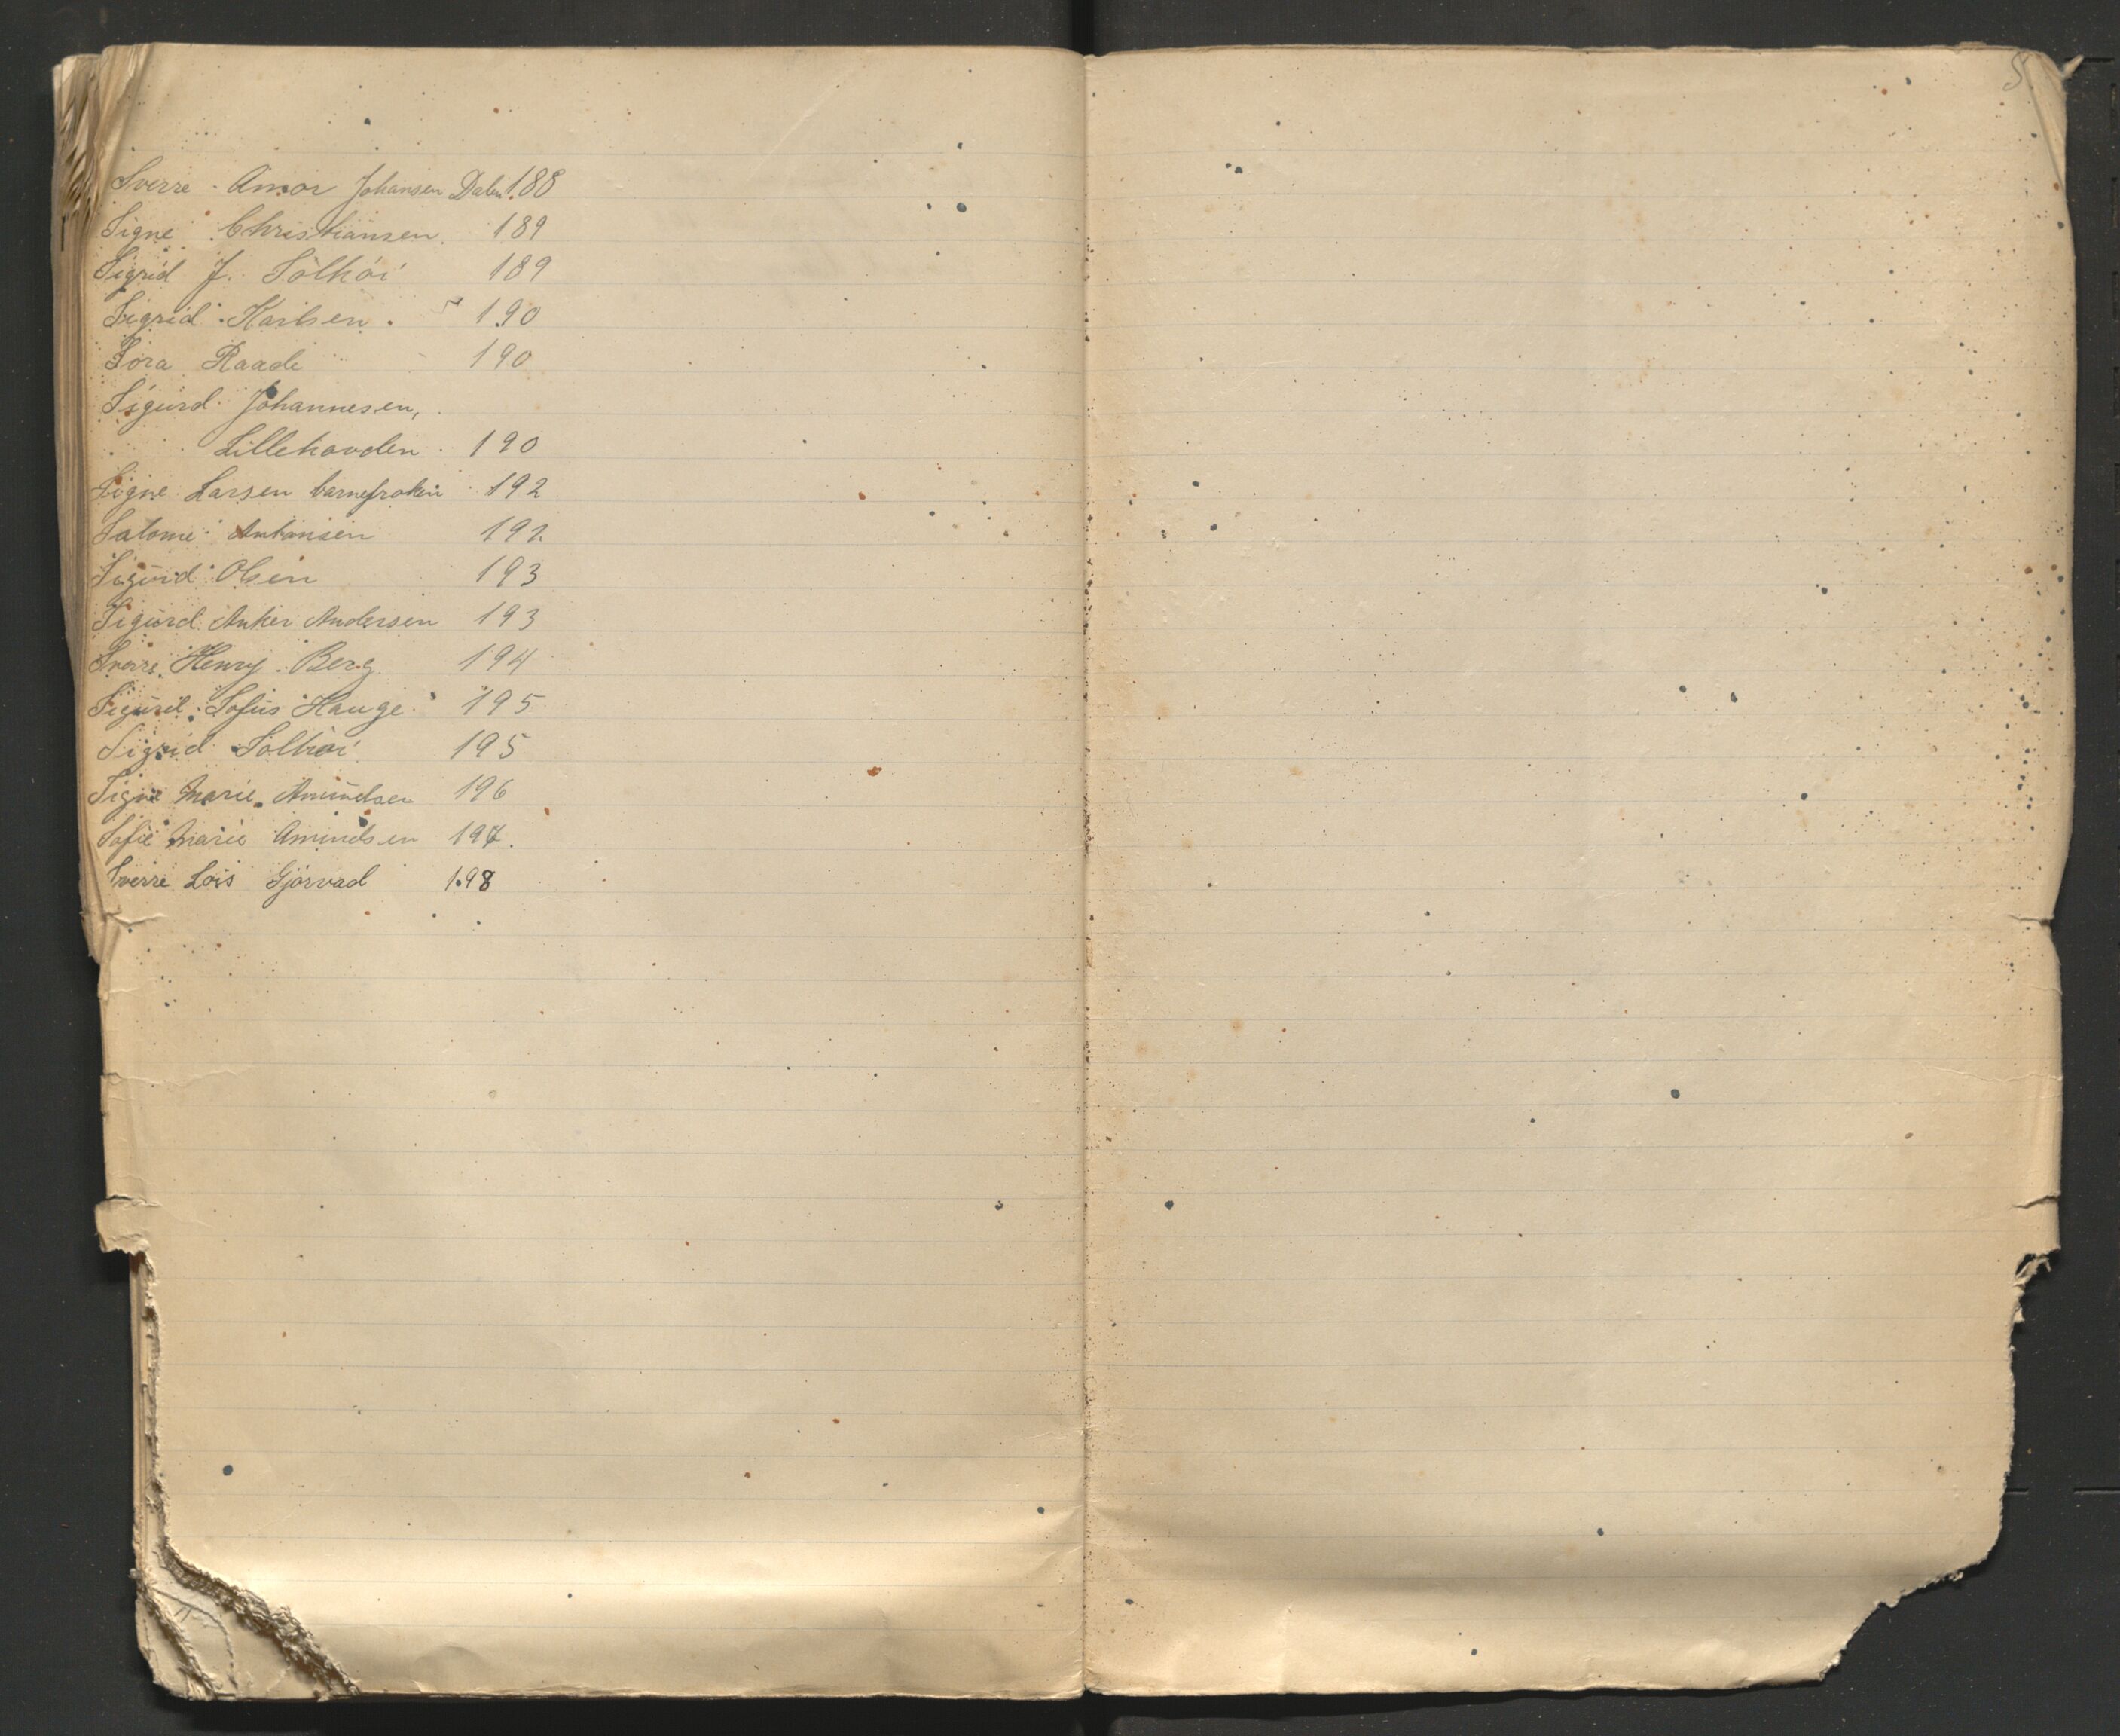 Sverre Amor Johansen Dalen 188
Signe Christiansen. 189
Sigrid J. Solhöi 189
Sigrid Karlsen. 190
Sora Raade 190
Sigurd Johannesen,
Lillehavden 190
Signe Larsen barnefrøken 192
Salome Antonsen 192
Sigurd Olsen 193
Sigurd Anker Andersen 193
Sverre Henry Berg 194
Sigurd Sofus Hauge 195
Sigrid Solhöi 195
Signe Marie Amundsen 196
Sofie Marie Amundsen 197.
Sverre Lois Gjörvad 198
S